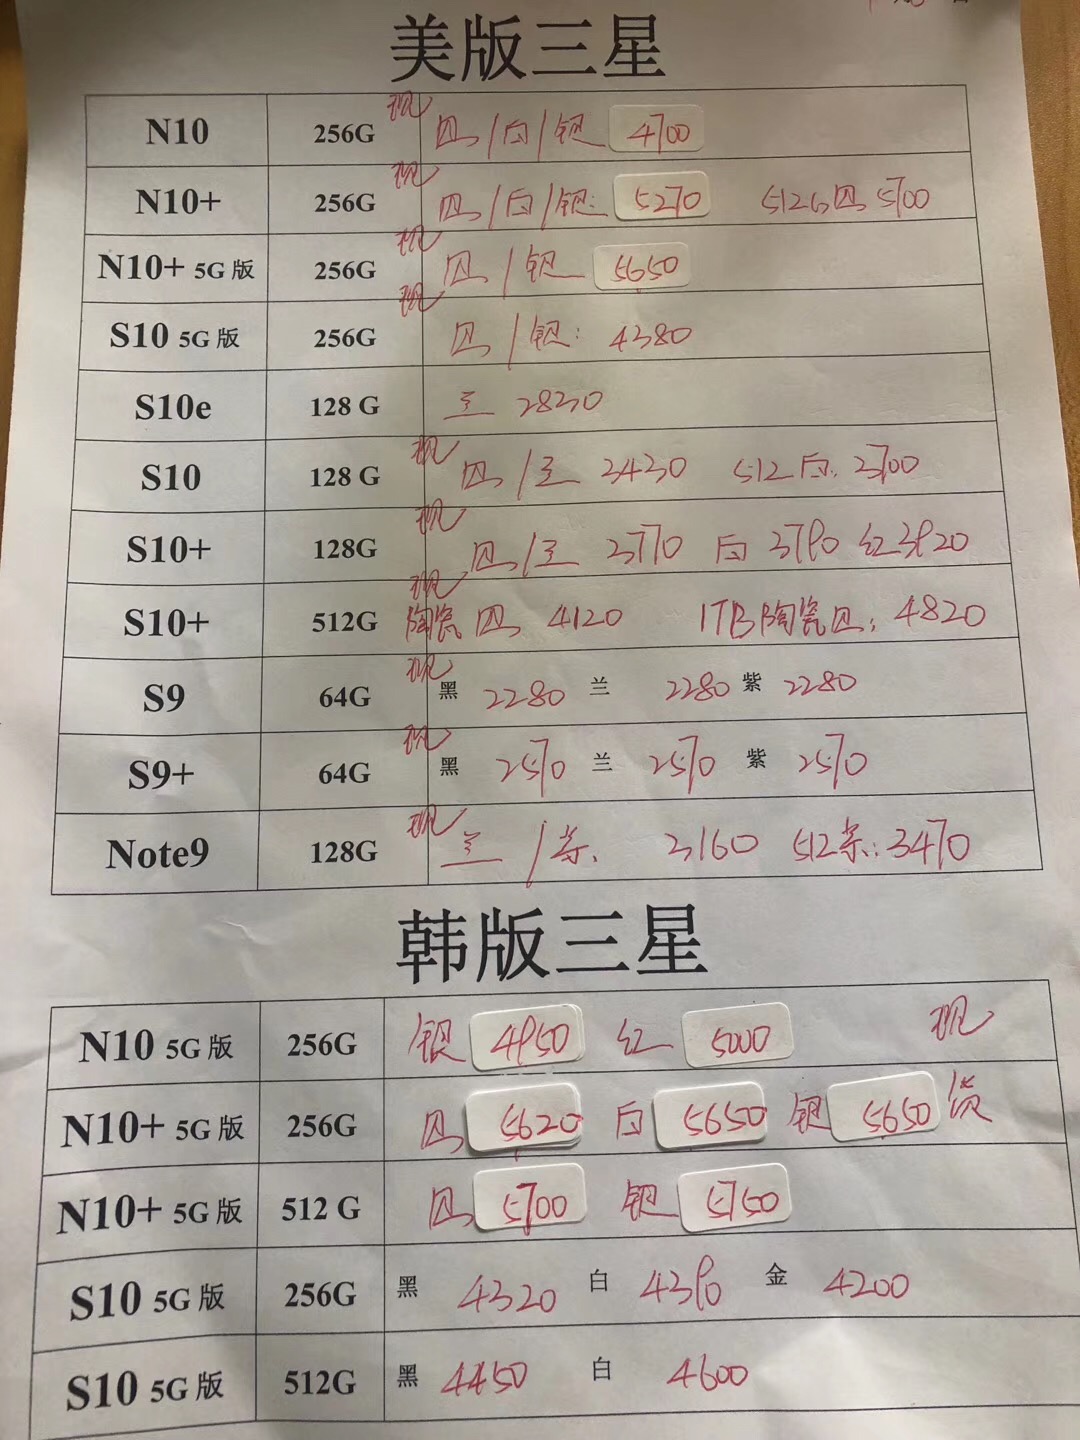 美版三星
N10 256G 现 黑/白/银 4700
N10+ 256G 现 黑/白/银: 5270 512G黑 5700
N10+ 5G版 256G 现 黑/银 5650
S10 5G版 256G 现 黑/银: 4380
S10e 128 G 兰 2830
S10 128 G 现 黑/兰 3430 512白: 3700
S10+ 128G 现 黑/兰 3770 白 3790 红3920
S10+ 512G 现 陶瓷黑 4120 1TB陶瓷黑: 4820
S9 64G 现 黑 2280 兰 2280 紫 2280
S9+ 64G 现 黑 2570 兰 2570 紫 2570
Note9 128G 现 兰/紫 3160 512紫: 3470
韩版三星
N10 5G版 256G 银 4950 红 5000 现
N10+ 5G版 256G 黑 5620 白 5650 银 5650 货
N10+ 5G版 512 G 黑 5700 银 5750
S10 5G版 256G 黑 4320 白 4390 金 4200
S10 5G版 512G 黑 4450 白 4600